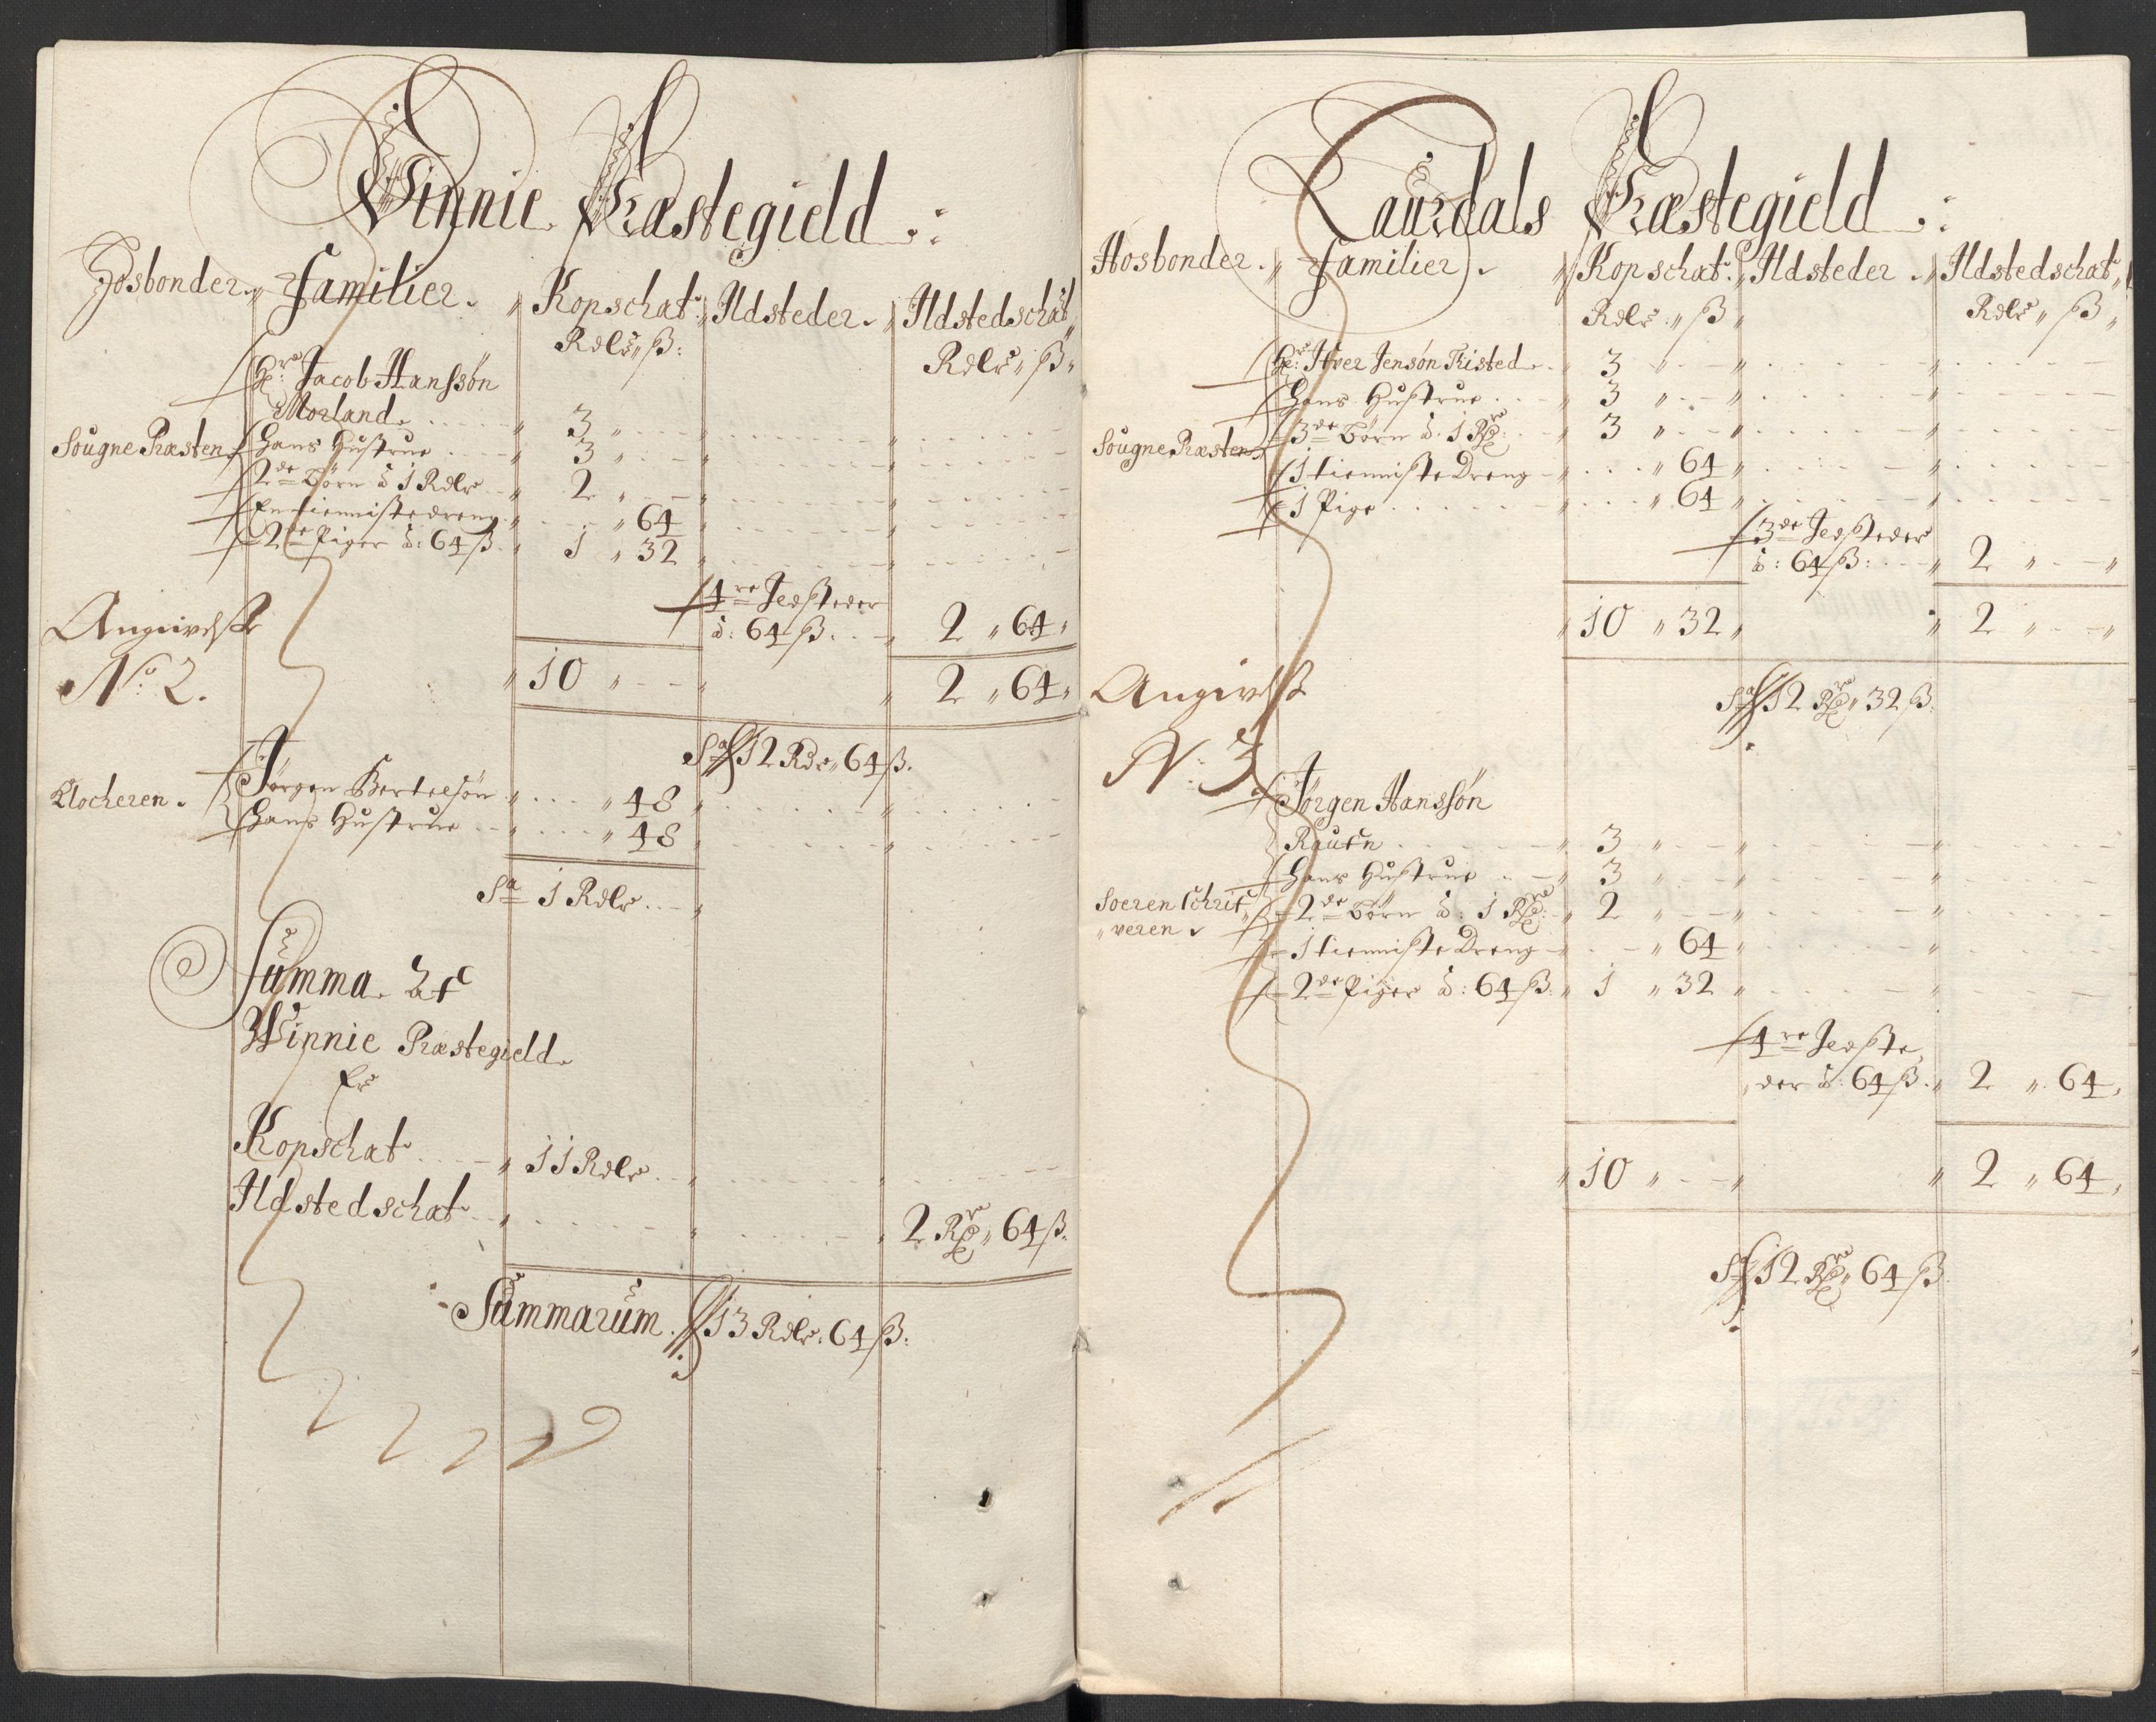 Winnie Præstegield .:
Hosbonder. Familier. Kopschat. Ildsteder. Ildstedschat
Rdlr. ß: Rdlr. ß.
Hr: Jacob Hanssøn
Morland. 3
Sougne Præsten. Hans Hustrue 3
2de Børn à 1 Rdlr 2
En tienniste dreng 64
2de Piger à: 64 ß. 1 " 32
4re Ildsteder
à: 64 ß. 2 " 64
Angivelse
No: 2.
10 " - 2 " 64
Sa 12 Rdr 64 ß.
Klocheren. Jørgen Bertelsøn 48
Hans Hustrue 48
Sa 1 Rdlr
Summa af
Winnie Præstegield.
Er
Kopschat 11 Rdlr
Ildstedschat 2 Rdr 64 ß.
Summarum. 13 Rdlr. 64 ß.
Laurdals Præstegield .:
Hosbonder. Familier. Kopschat. Ildsteder. Ildstedschat
Rdlr. ß Rdlr. ß
Hr: Ifver Jensøn Tristed. 3
Hans Hustrue 3
Sougne Præsten. 3de Børn à. 1 Rdr 3
1 tienniste Dreng 64
1 Pige 64
3de Ildsteder
à: 64 ß: 2
10 " 32 2
Angivelse
Sa 12 Rdr 32 ß.
N: 3
Jørgen Hanssøn
Rauen 3
Hans Hustrue 3
Soeren Schrif 2de Børn à: 1 Rdr 2
veren.
1 tienniste Dreng 64
2de Piger à: 64 ß. 1 " 32
4re Ildste
der à: 64 ß. 2 " 64
10 " - 2 " 64
Sa 12 Rdr 64 ß